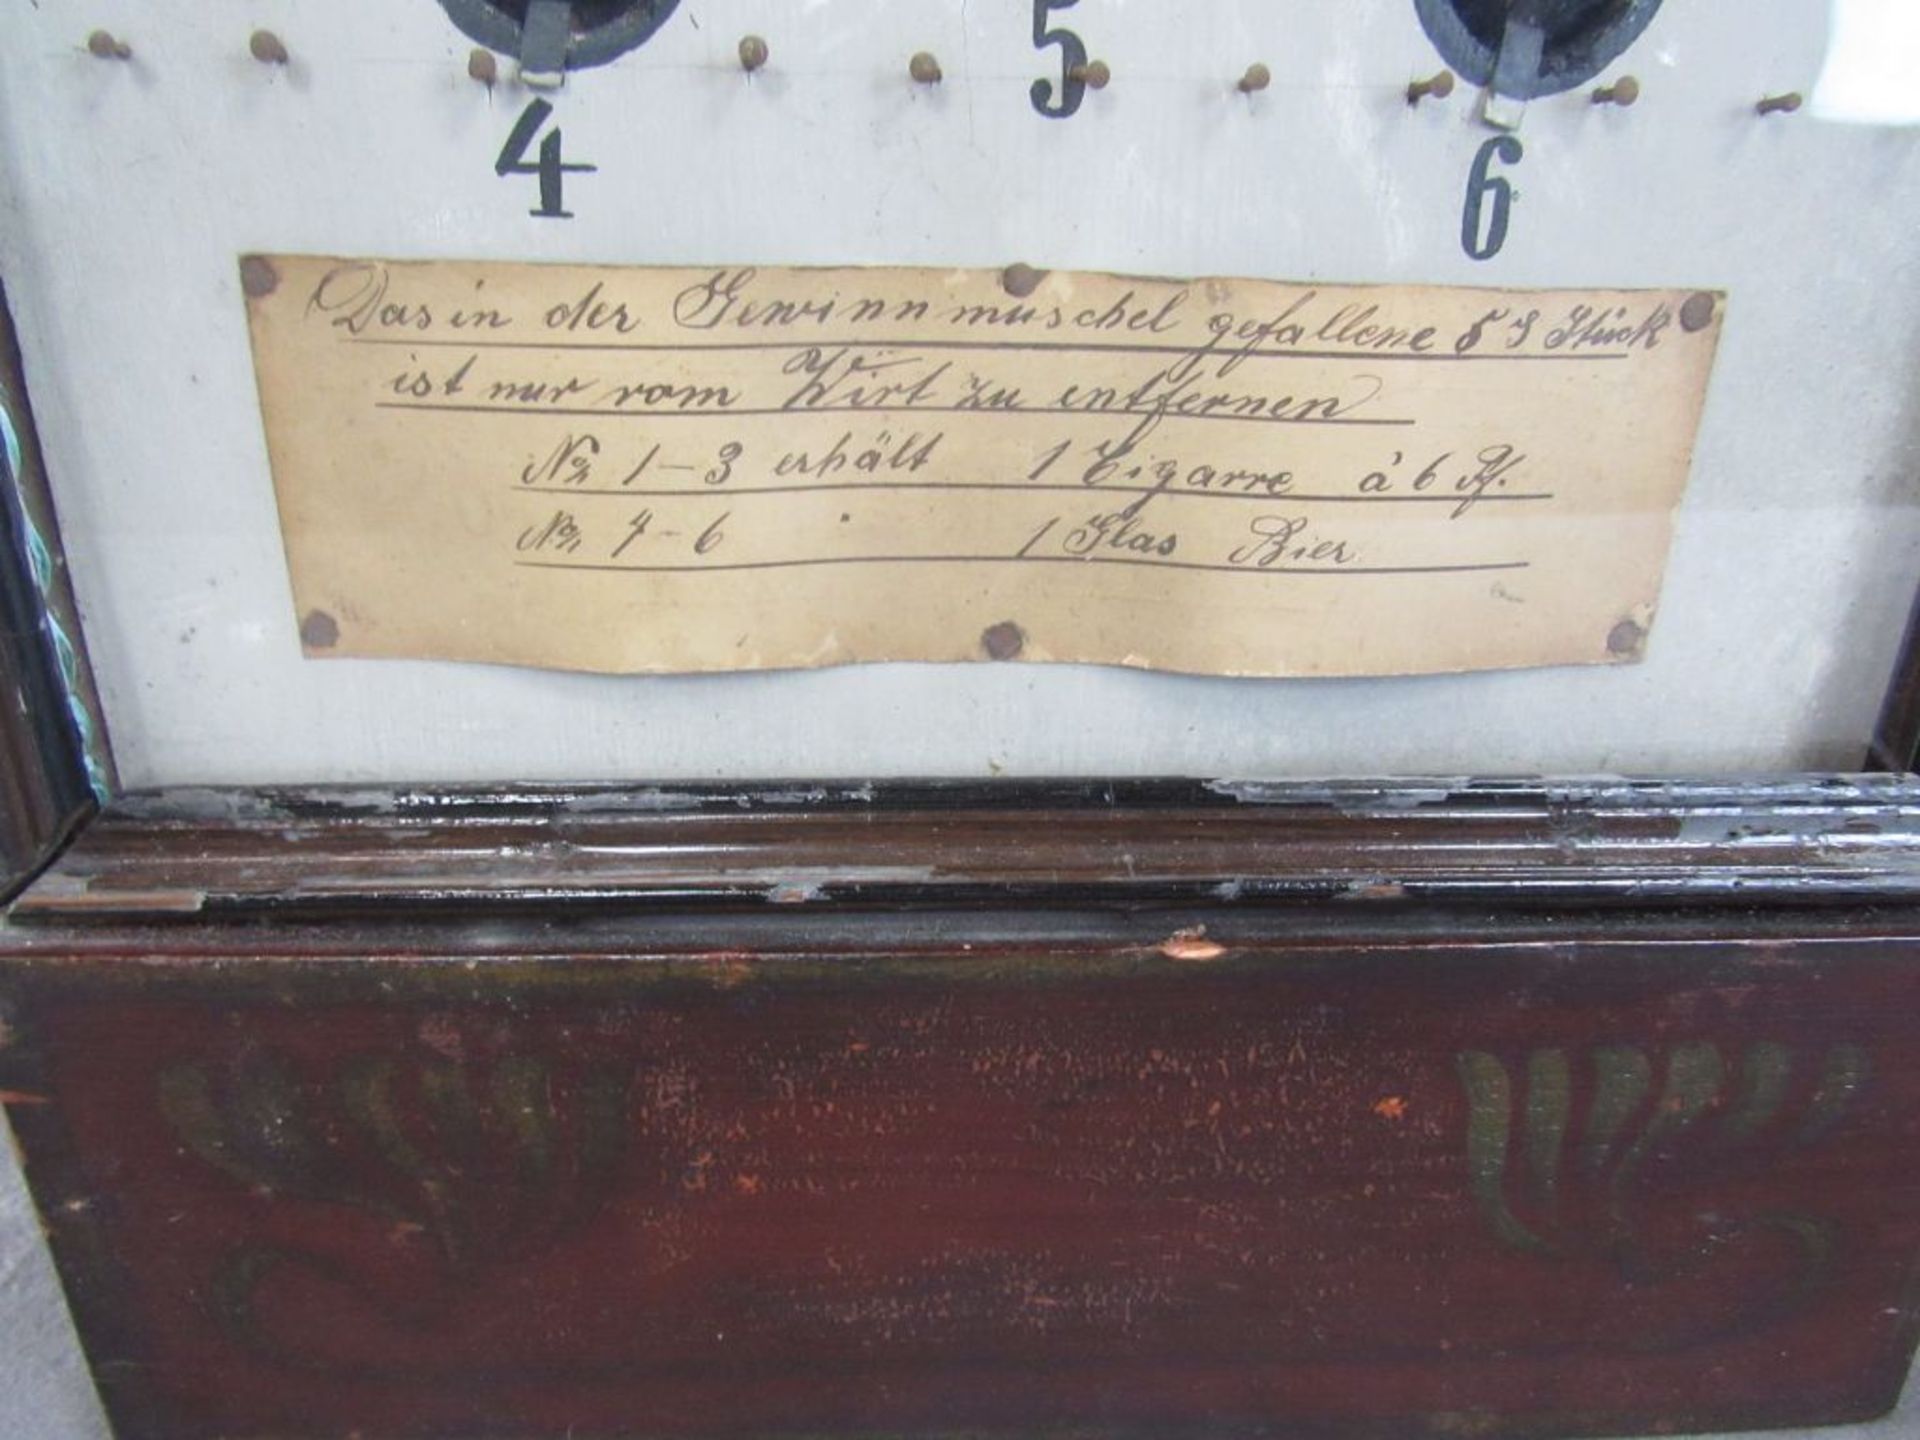 5
4
6
Das in der Gewinnmuschel gefallene 5 ₰ Stück
ist nur vom Wirt zu entfernen
No 1-3 erhält 1 Cigarre à 6 Pf.
No 4-6 " 1 Glas Bier